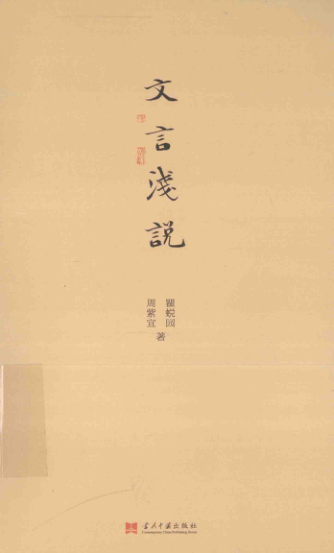 文言淺説
瞿蜕园
周紫宜
著
当代中国出版社
Contemporary China Publishing House